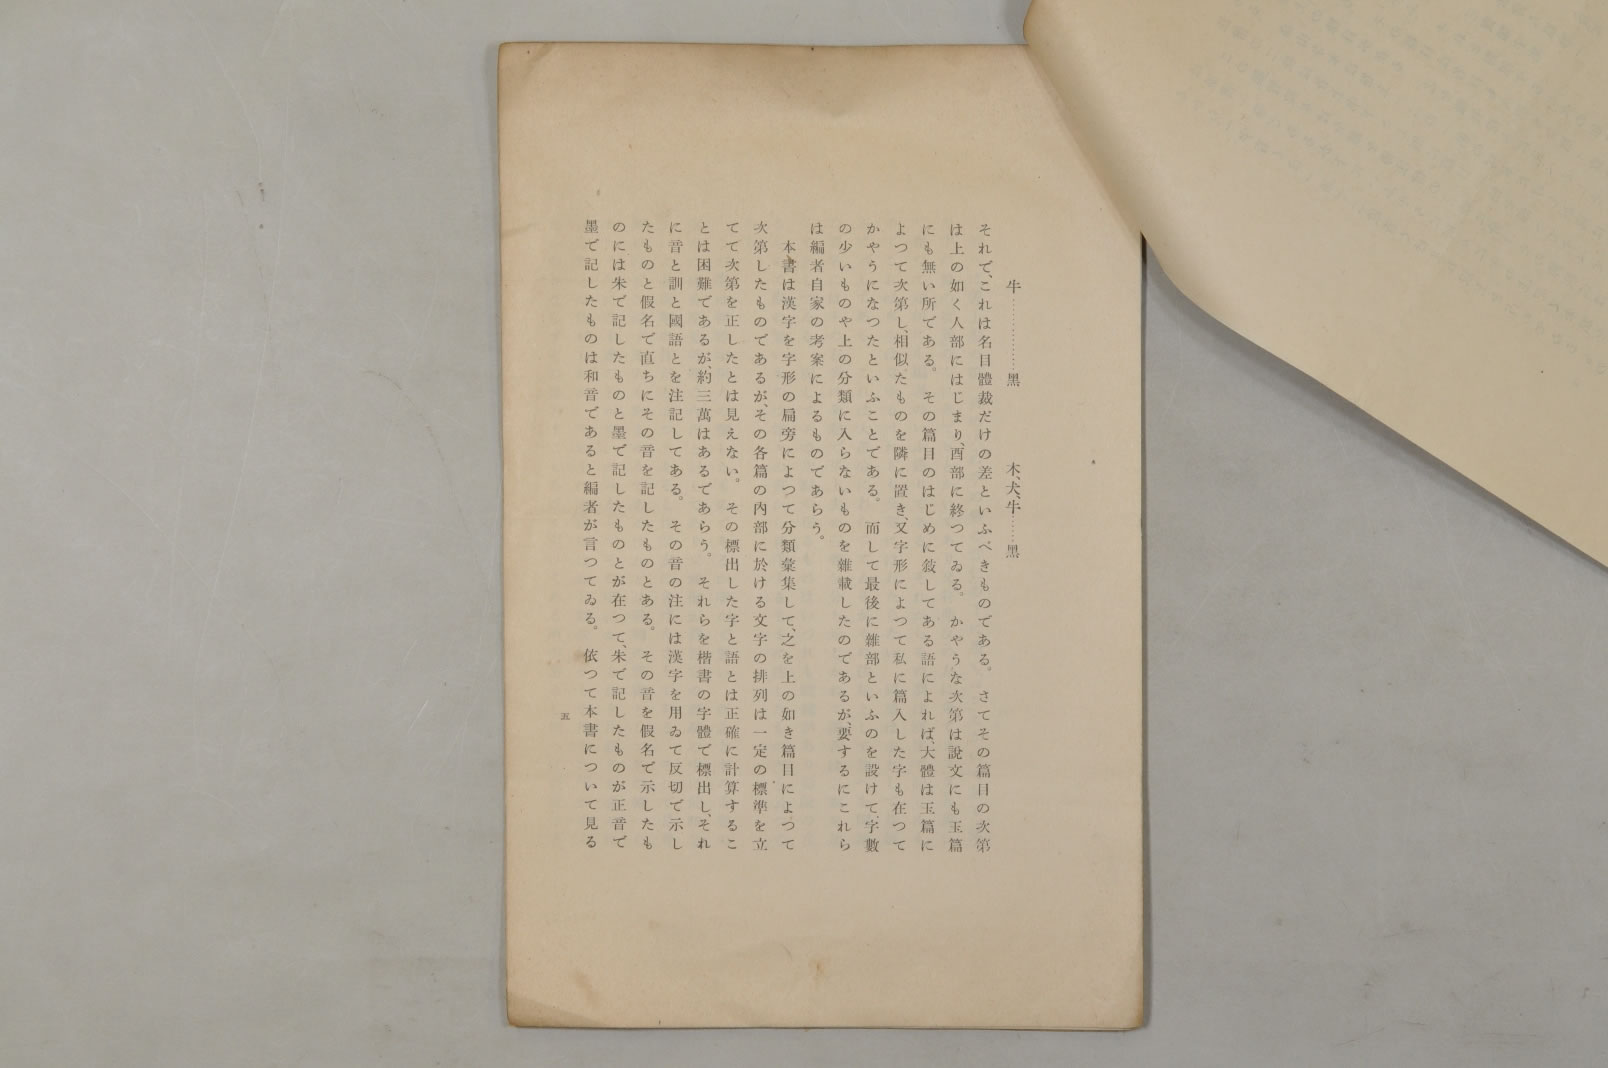 牛……………黒　　　　木、犬、牛……黒
それで、これは名目體裁だけの差といふべきものである。さてその篇目の次第
は上の如く人部にはじまり、酉部に終つてゐる。かやうな次第は說文にも玉篇
にも無い所である。その篇目のはじめに敍してある語によれば、大體は玉篇に
よつて次第し、相似たものを隣に置き、又字形によつて私に篇入した字も在つて
かやうになつたといふことである。而して最後に雜部といふのを設けて、字數
の少いものや上の分類に入らないものを雜載したのであるが、要するにこれら
は編者自家の考案によるものであらう。
本書は漢字を字形の扁旁によつて分類彙集して、之を上の如き篇目によつて
次第したものであるが、その各篇の內部に於ける文字の排列は一定の標準を立
てて次第を正したとは見えない。その標出した字と語とは正確に計算するこ
とは困難であるが、約三萬はあるであらう。それらを楷書の字體で標出し、それ
に音と訓と國語とを注記してある。その音の注には漢字を用ゐて反切で示し
たものと假名で直ちにその音を記したものとある。その音を假名で示したも
のには朱で記したものと墨で記したものとが在つて、朱で記したものが正音で
墨で記したものは和音であると編者が言つてゐる。依つて本書について見る
五